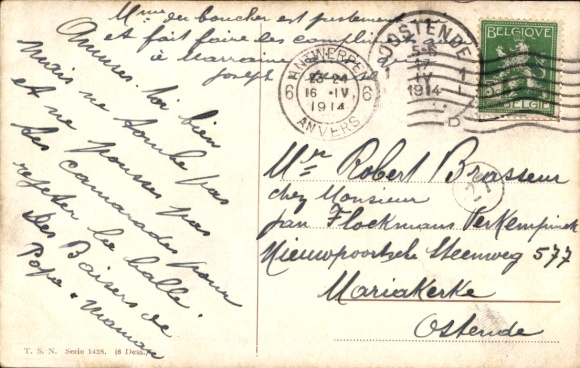 Mme du boucher est justement
et fait faire des compliments
à Marraine
Joseph
Amuses-toi bien
mais ne tombe pas
et ne pousses pas
les camarades pour
rejeter la balle
des Baisers de
Papa & Maman
ANTWERPEN
6 23-24 6
16 · IV
1914
ANVERS
OOSTENDE
1 17 1
IV
1914
D
BELGIQUE
BELGIË
Mr. Robert Brasseur
chez Monsieur
Jan Flockmans Verkempinck
Nieuwpoortsche Steenweg 577
Mariakerke
Ostende
T. S. N. Serie 1428. (6 Dess.)